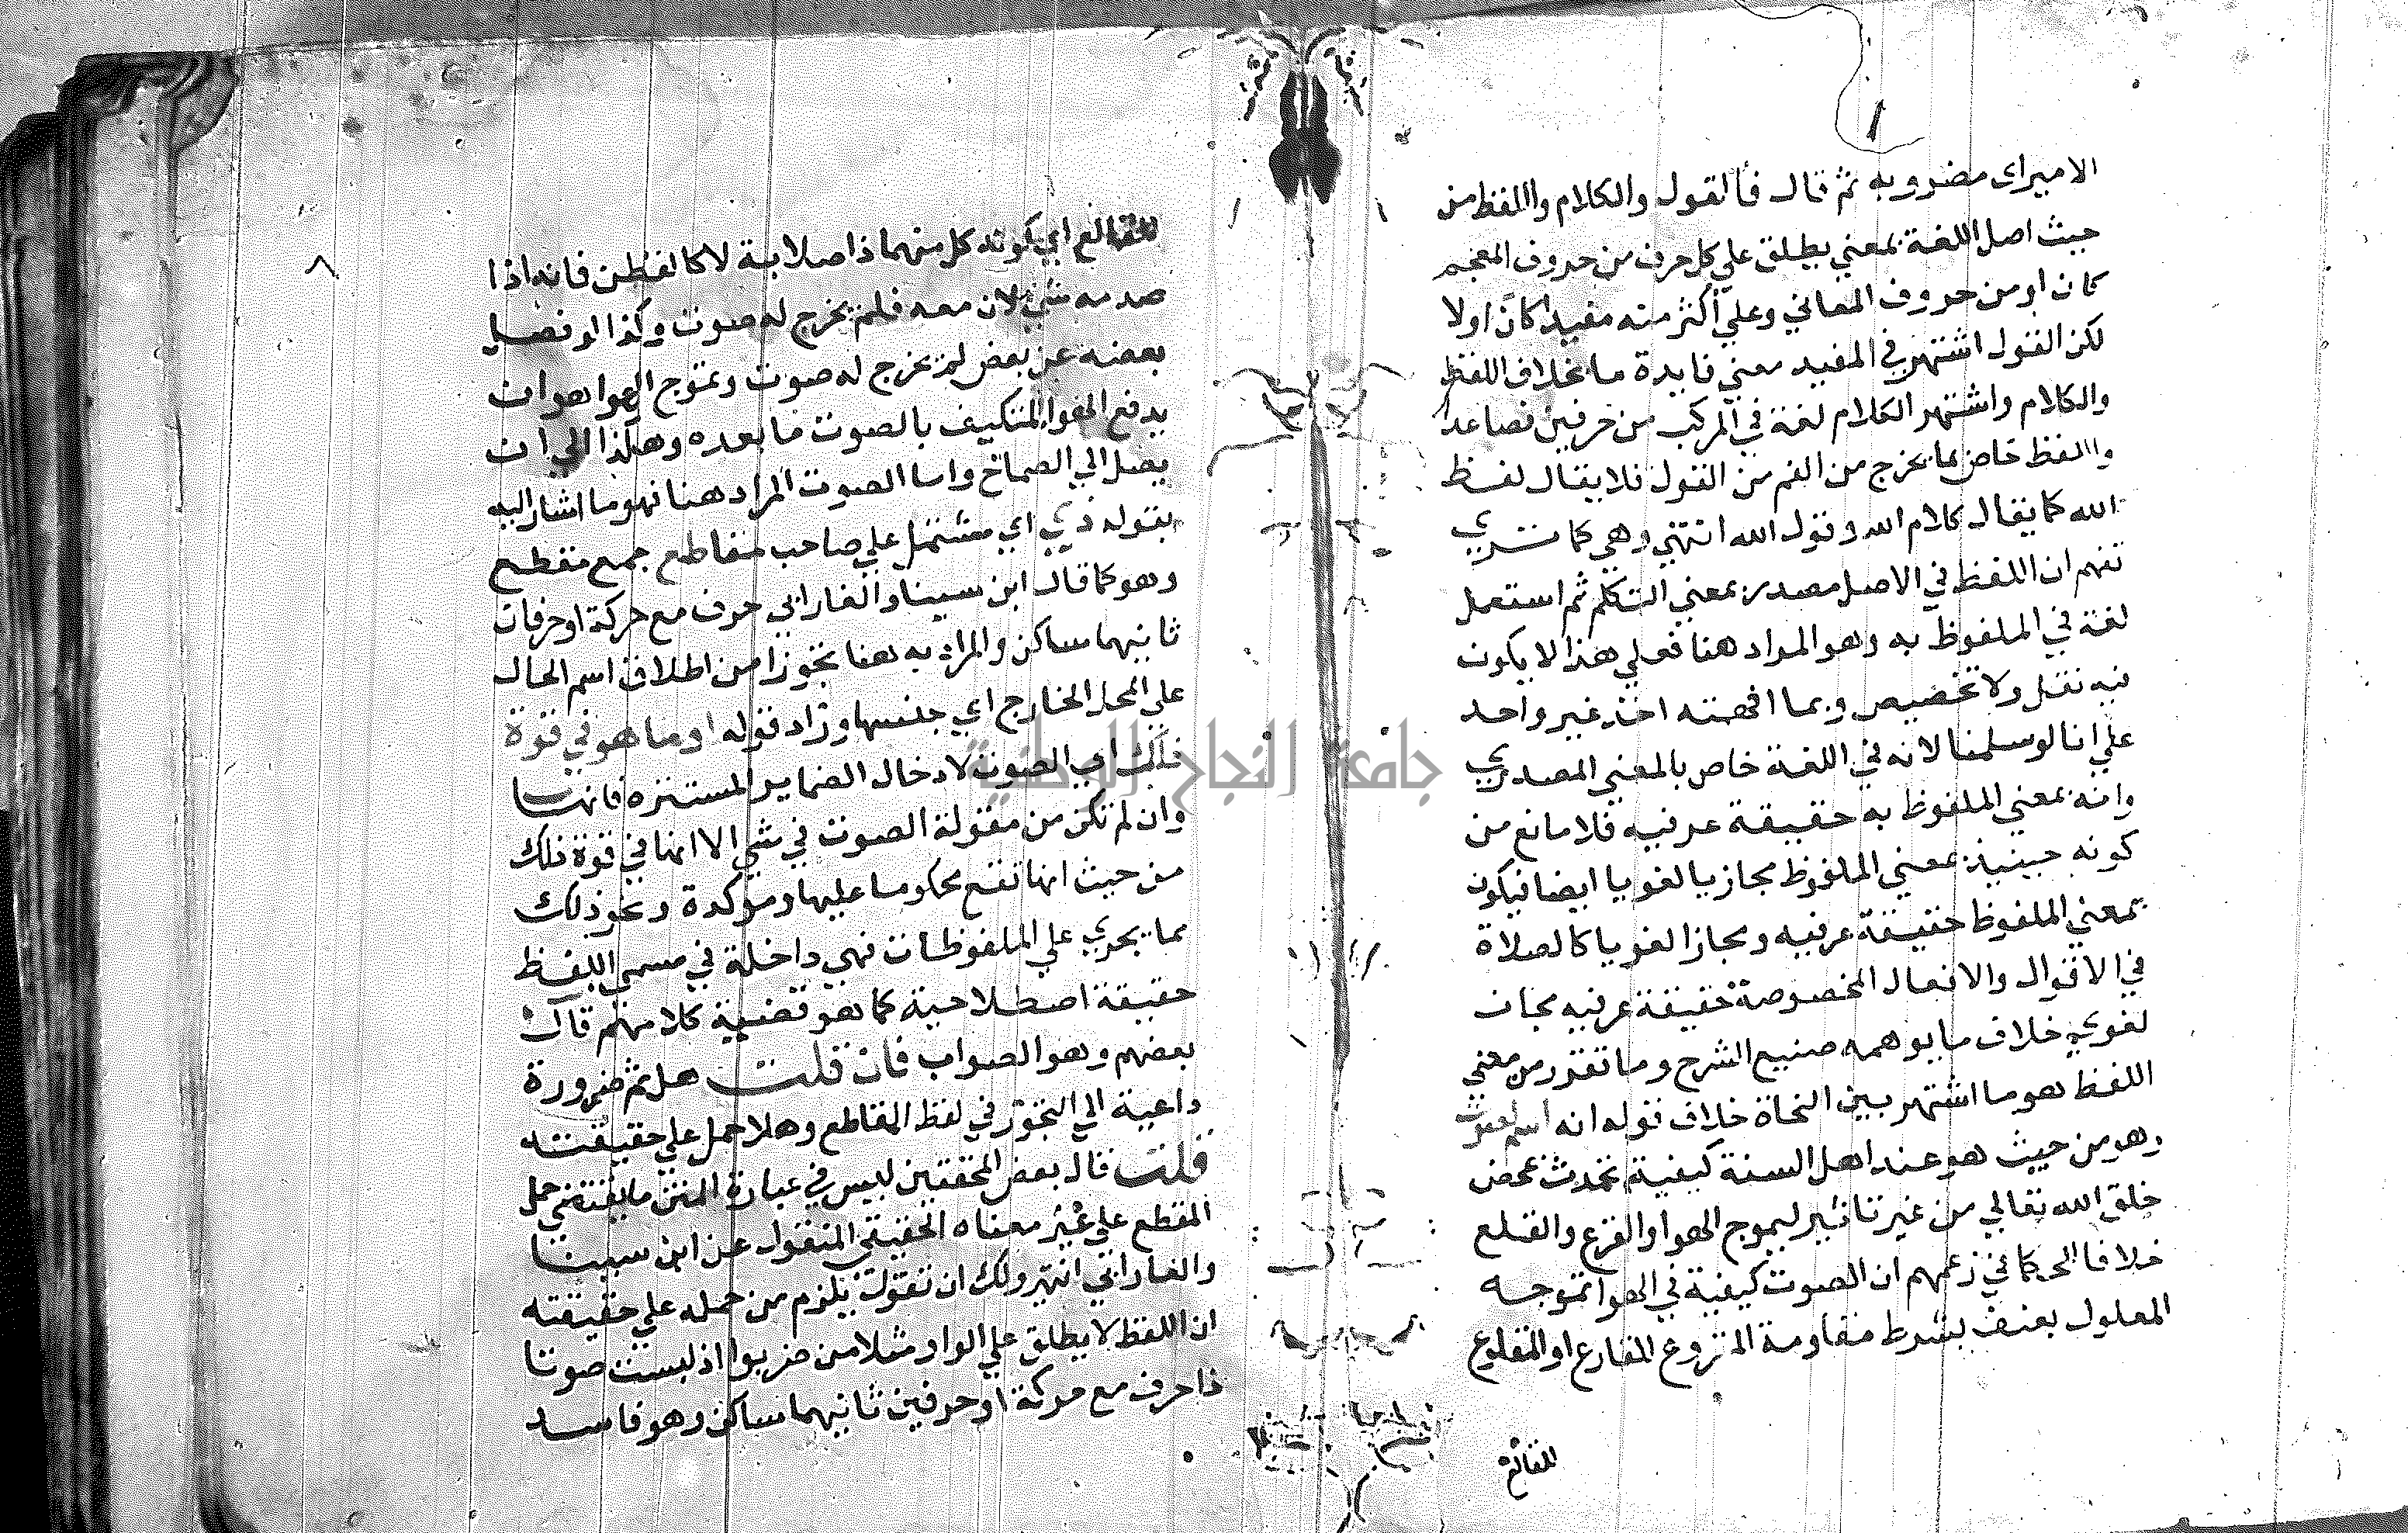 الامير اى مضروبه ثم قال فالقول والكلام واللفظ من
حيث اصل اللغة بمعني يطلق علي كل حرف من حروف المعجم
كان او من حروف المعاني وعلي أكثر منه مفيدا كان اولا
لكن القول اشتهر في المفيد معني فايدة ما بخلاف اللفظ
والكلام واشتهر الكلام لغة في المركب من حرفين فصاعدا
واللفظ خاص بما يخرج من الفم من القول فلا يقال لفظ
الله كما يقال كلام الله وقول الله انتهي وهي كما تري
تفهم ان اللفظ في الاصل مصدر بمعني التكلم ثم استعمل
لغة في الملفوظ به وهو المراد هنا فعلي هذا لا يكون
فيه نقل ولا تخصيص وبما افهمته اخذ غير واحد
علي انا لو سلمنا لانه في اللغة خاص بالمعني المصدري
وانه بمعني الملفوظ به حقيقة عرفيه فلا مانع من
كونه حينيذ بمعني الملفوظ مجازيا لغويا ايضا فيكون
بمعني الملفوظ حقيقة عرفيه ومجازا لغويا كالصلاة
في الاقوال والافعال المخصوصة حقيقة عرفيه مجاز
لغوي خلاف ما يوهمه صنيع الشرح وما تقرر من معني
اللفظ هو ما اشتهر بين النحاة خلاف قوله انه اسم
وهو من حيث هو عند اهل السنة كيفية تحدث بمحض
خلق الله تعالي من غير تاثير لتموج الهوا والقرع والقلع
خلافا للحكما في زعمهم ان الصوت كيفية في الهوا بتموجه
المعلول بعنف بشرط مقاومة المقروع القارع او المقلوع
للقالع
٨
للقالع اي يكون كل منهما ذا صلابة لا كالقطن فانه اذا
صدمه شي لان معه فلم يخرج له صوت وكذا لو فصل
بعضه عن بعض لم يخرج له صوت وتموج الهوا هو ان
يدفع الهوا المتكيف بالصوت ما بعده وهكذا الي ان
يصل الي الصماخ واما الصوت المراد هنا فهو ما اشار اليه
بقوله ذي اي مشتمل علي صاحب مقاطع جمع مقطع
وهو كما قال ابن سينا والفارابي حرف مع حركة او حرفان
ثانيهما ساكن والمراد به هنا تجوزا من اطلاق اسم الحال
علي المحل الخارج اي جنسها وزاد قوله او ما هو في قوة
ذلك اي الصوت لادخال الضماير المستتره فانها
وان لم تكن من مقولة الصوت في شي الا انها في قوة ذلك
من حيث انها تقع محكوما عليها ومؤكدة ونحو ذلك
مما يجري علي الملفوظات فهي داخلة في مسمي اللفظ
حقيقة اصطلاحية كما هو قضية كلامهم قال
بعضهم وهو الصواب فان قلت هل ثم ضرورة
داعية الي التجوز في لفظ المقاطع وهلا حمل علي حقيقته
قلت قال بعض المحققين ليس في عبارة المتن ما يقتضي حمل
المقطع علي غير معناه الحقيقي المنقول عن ابن سينا
والفارابي انتهي ولك ان تقول يلزم من حمله علي حقيقته
ان اللفظ لا يطلق علي الواو مثلا من ضربوا اذ ليست صوتا
ذا حرف مع حركة او حرفين ثانيهما ساكن وهو فاسد
جامعة النجاح الوطنية